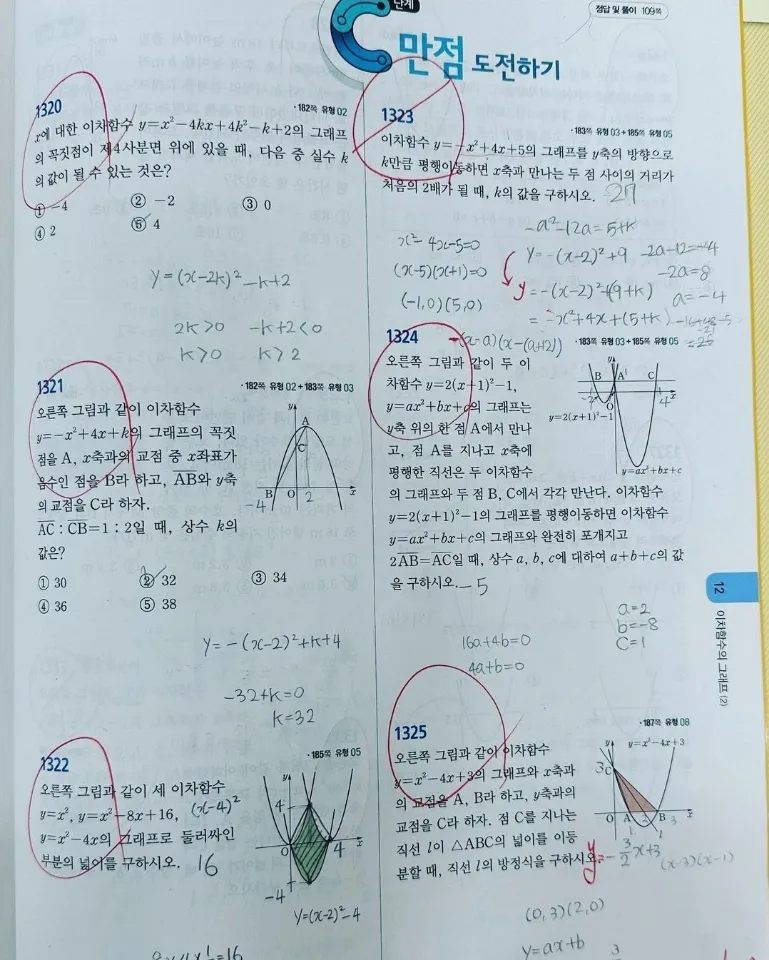 단계
정답 및 풀이 109쪽
C 만점 도전하기
1320
· 182쪽 유형 02
x에 대한 이차함수 y=x²-4kx+4k²-k+2의 그래프
의 꼭짓점이 제4사분면 위에 있을 때, 다음 중 실수 k
의 값이 될 수 있는 것은?
① -4 ② -2 ③ 0
④ 2 ⑤ 4
y=(x-2k)²-k+2
2k>0 -k+2<0
k>0 k>2
1321
· 182쪽 유형 02+183쪽 유형 03
오른쪽 그림과 같이 이차함수
y=-x²+4x+k의 그래프의 꼭짓
점을 A, x축과의 교점 중 x좌표가
음수인 점을 B라 하고, AB와 y축
의 교점을 C라 하자.
AC : CB=1 : 2일 때, 상수 k의
값은?
y
A
C
B O 2 x
-4
① 30 ② 32 ③ 34
④ 36 ⑤ 38
y=-(x-2)²+k+4
-32+k=0
k=32
1322
· 185쪽 유형 05
오른쪽 그림과 같이 세 이차함수
y=x², y=x²-8x+16, (x-4)²
y=x²-4x의 그래프로 둘러싸인
부분의 넓이를 구하시오. 16
y
4
O 4 x
-4
y=(x-2)²-4
=16
1323
· 183쪽 유형 03+185쪽 유형 05
이차함수 y=-x²+4x+5의 그래프를 y축의 방향으로
k만큼 평행이동하면 x축과 만나는 두 점 사이의 거리가
처음의 2배가 될 때, k의 값을 구하시오. 27
-a²-12a=5+k
x²-4x-5=0
y=-(x-2)²+9
-2a-12=-4
(x-5)(x+1)=0
-2a=8
y=-(x-2)²+(9+k)
a=-4
(-1,0)(5,0)
=-x²+4x+(5+k)
-(x-a)(x-(a+12))
1324
· 183쪽 유형 03+185쪽 유형 05
오른쪽 그림과 같이 두 이
차함수 y=2(x+1)²-1,
y=ax²+bx+c의 그래프는
y축 위의 한 점 A에서 만나
고, 점 A를 지나고 x축에
평행한 직선은 두 이차함수
의 그래프와 두 점 B, C에서 각각 만난다. 이차함수
y=2(x+1)²-1의 그래프를 평행이동하면 이차함수
y=ax²+bx+c의 그래프와 완전히 포개지고
2AB=AC일 때, 상수 a, b, c에 대하여 a+b+c의 값
을 구하시오. -5
y
B A 1 C
-2 O 4 x
y=2(x+1)²-1
y=ax²+bx+c
a=2
b=-8
c=1
16a+4b=0
4a+b=0
1325
· 187쪽 유형 08
오른쪽 그림과 같이 이차함수
y=x²-4x+3의 그래프와 x축과
의 교점을 A, B라 하고, y축과의
교점을 C라 하자. 점 C를 지나는
직선 l이 △ABC의 넓이를 이등
분할 때, 직선 l의 방정식을 구하시오.
y=-3/2x+3
y y=x²-4x+3
3C
O A B 3 x
1 l
(x-3)(x-1)
(0,3)(2,0)
y=ax+b
12
이차함수의 그래프 (2)